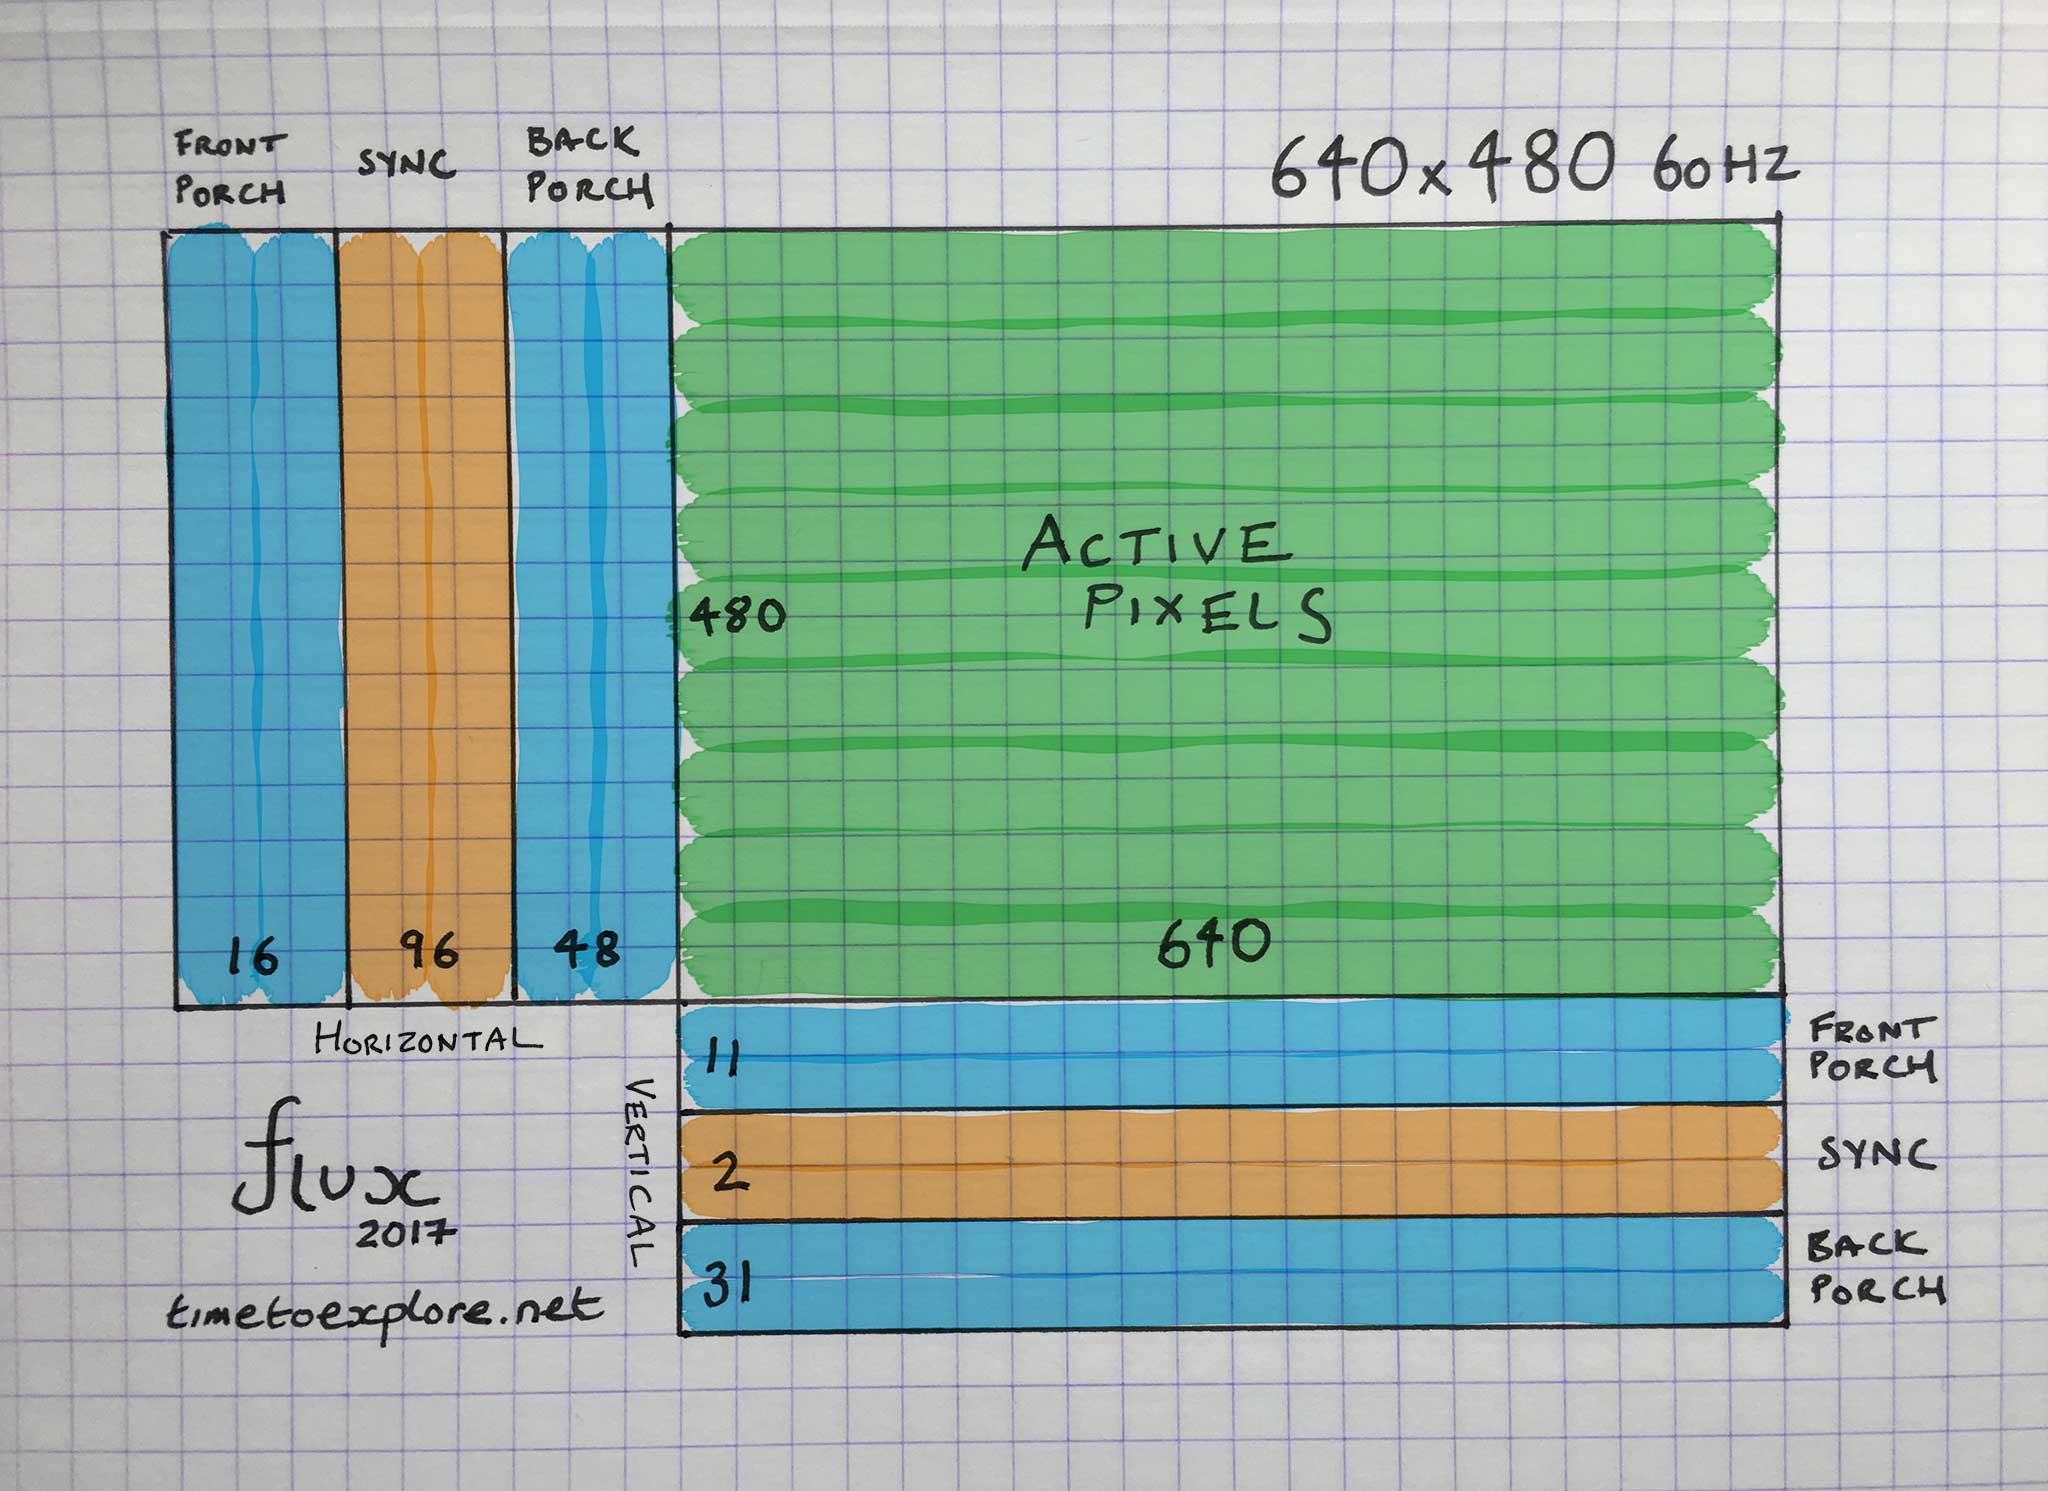 FRONT
PORCH
SYNC
BACK
PORCH
640x480 60HZ
ACTIVE
PIXELS
480
16
96
48
640
HORIZONTAL
VERTICAL
11
FRONT
PORCH
2
SYNC
31
BACK
PORCH
flux
2017
timetoexplore.net